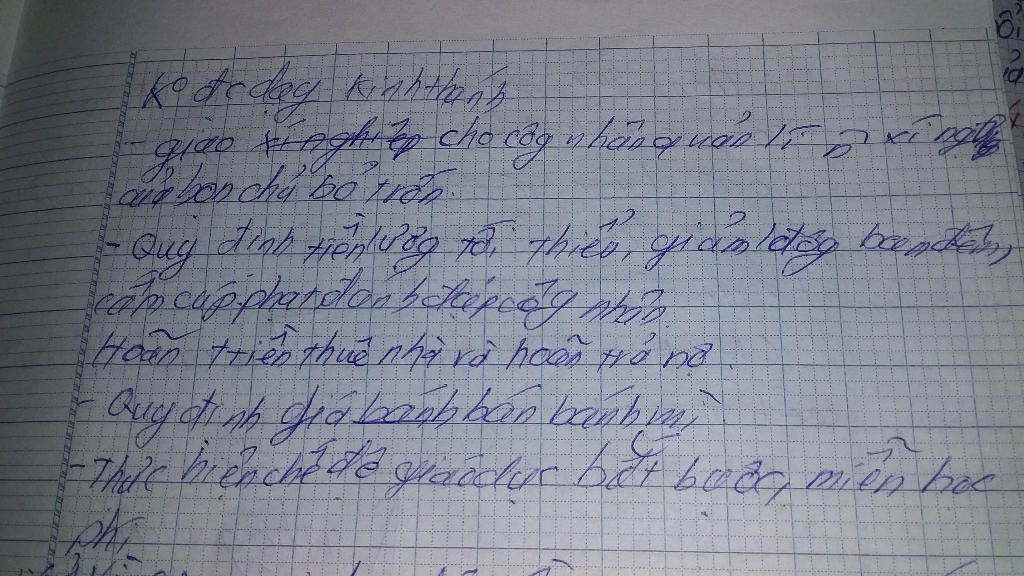 Ko đc dạy Kinh thánh
- giao xí nghiệp cho côg nhân quản lí n~ xí ngh
của bọn chủ bỏ trốn.
- Quy định tiền lươg tối thiểu, giảm lđộg ban đêm,
cấm cúp phạt đánh đập côg nhân
Hoãn tiền thuê nhà và hoãn trả nợ
- Quy định giá bánh bán bánh mì
- Thực hiện chế độ giáo dục bắt buộc, miễn học
phí